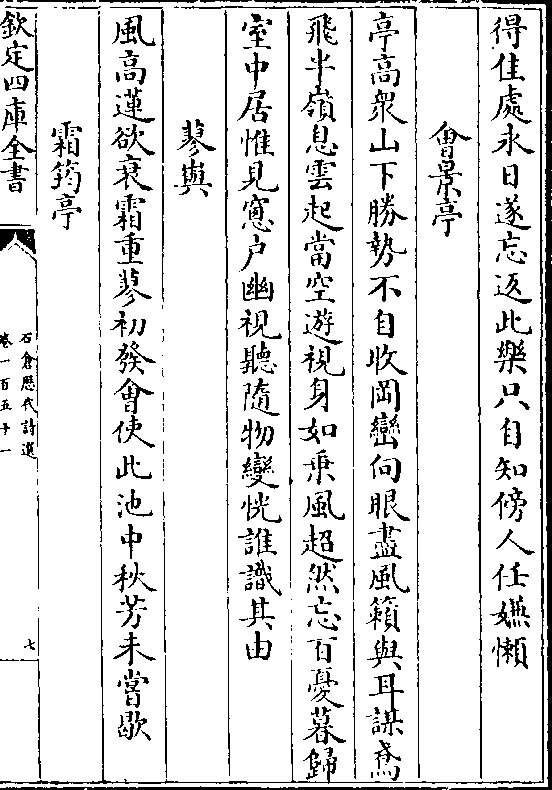 得佳處永日遂忘返此樂只自知傍人任嫌懶
會景亭
亭高衆山下勝勢不自收岡巒向眼盡風籟與耳謀鳶
飛半嶺息雲起當空遊視身如乗風超然忘百憂暮歸
室中居惟見窓户幽視聽隨物變恍誰識其由
蓼嶼
風高蓮欲衰霜重蓼初發會使此池中秋芳未嘗歇
霜筠亭
欽定四庫全書
石倉歴代詩選
卷一百五十一
七